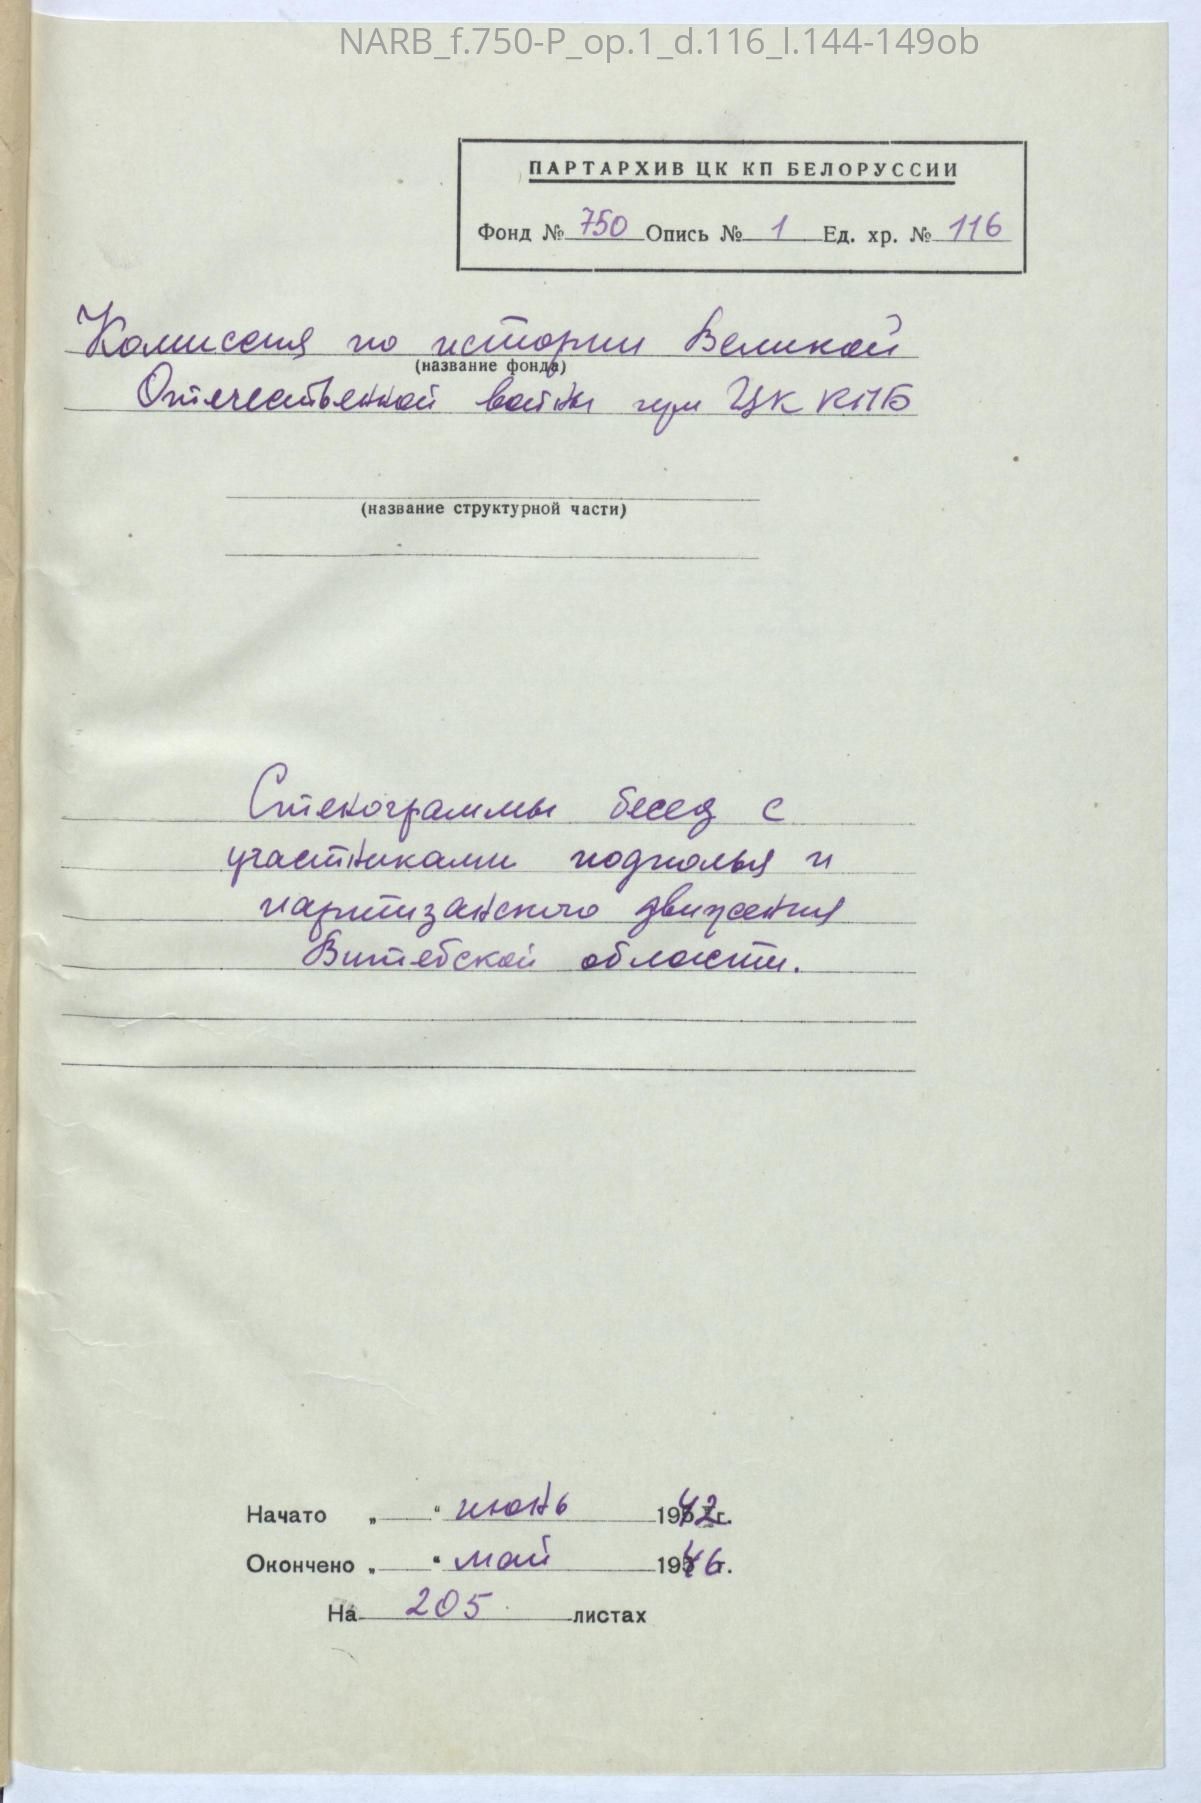 NARB_f.750-P_op.1_d.116_l.144-149ob
ПАРТАРХИВ ЦК КП БЕЛОРУССИИ
Фонд № 750 Опись № 1 Ед. хр. № 116
Комиссия по истории Великой
(название фонда)
Отечественной войны при ЦК КПБ
(название структурной части)
Стенограммы бесед с
участниками подполья и
партизанского движения
Витебской области.
Начато „ “ июнь 1942 г.
Окончено „ “ май 1946 г.
На 205 листах